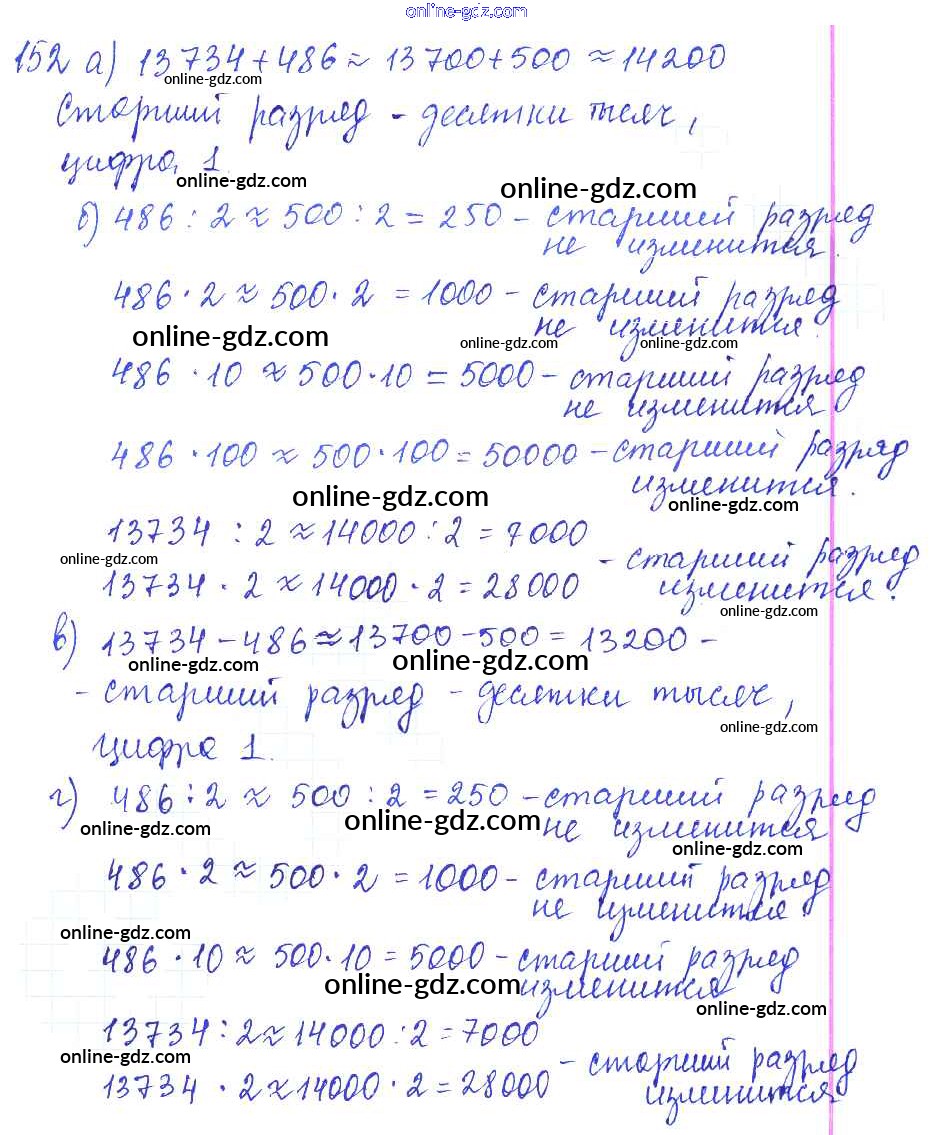 online-gdz.com
152 а) 13734+486≈13700+500≈14200
online-gdz.com online-gdz.com
Старший разряд - десятки тысяч,
цифра 1.
online-gdz.com online-gdz.com
б) 486:2≈500:2=250 - старший разряд
не изменится.
486·2≈500·2=1000 - старший разряд
не изменится.
online-gdz.com online-gdz.com online-gdz.com
486·10≈500·10=5000 - старший разряд
не изменится
486·100≈500·100=50000 - старший разряд
изменится.
online-gdz.com online-gdz.com
13734:2≈14000:2=7000
online-gdz.com - старший разряд
13734·2≈14000·2=28000 изменится.
online-gdz.com
в) 13734-486≈13700-500=13200 -
online-gdz.com online-gdz.com
- старший разряд - десятки тысяч,
online-gdz.com
цифра 1.
г) 486:2≈500:2=250 - старший разряд
online-gdz.com online-gdz.com не изменится
online-gdz.com
486·2≈500·2=1000 - старший разряд
не изменится
online-gdz.com
486·10≈500·10=5000 - старший разряд
online-gdz.com изменится
online-gdz.com
13734:2≈14000:2=7000
online-gdz.com - старший разряд
13734·2≈14000·2=28000 изменится